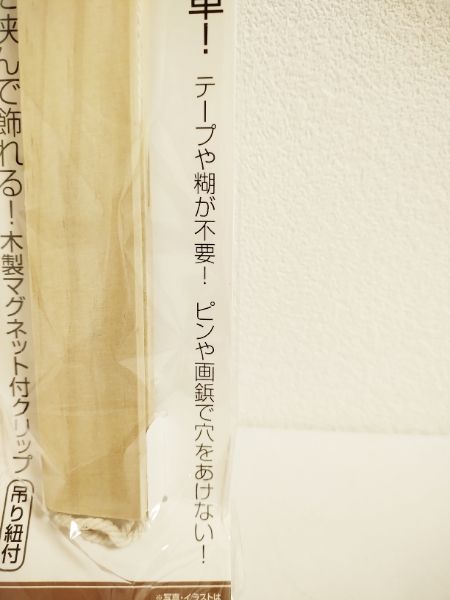 単！ テープや糊が不要！ ピンや画鋲で穴をあけない！
と挟んで飾れる！木製マグネット付クリップ
吊り紐付
※写真・イラストは